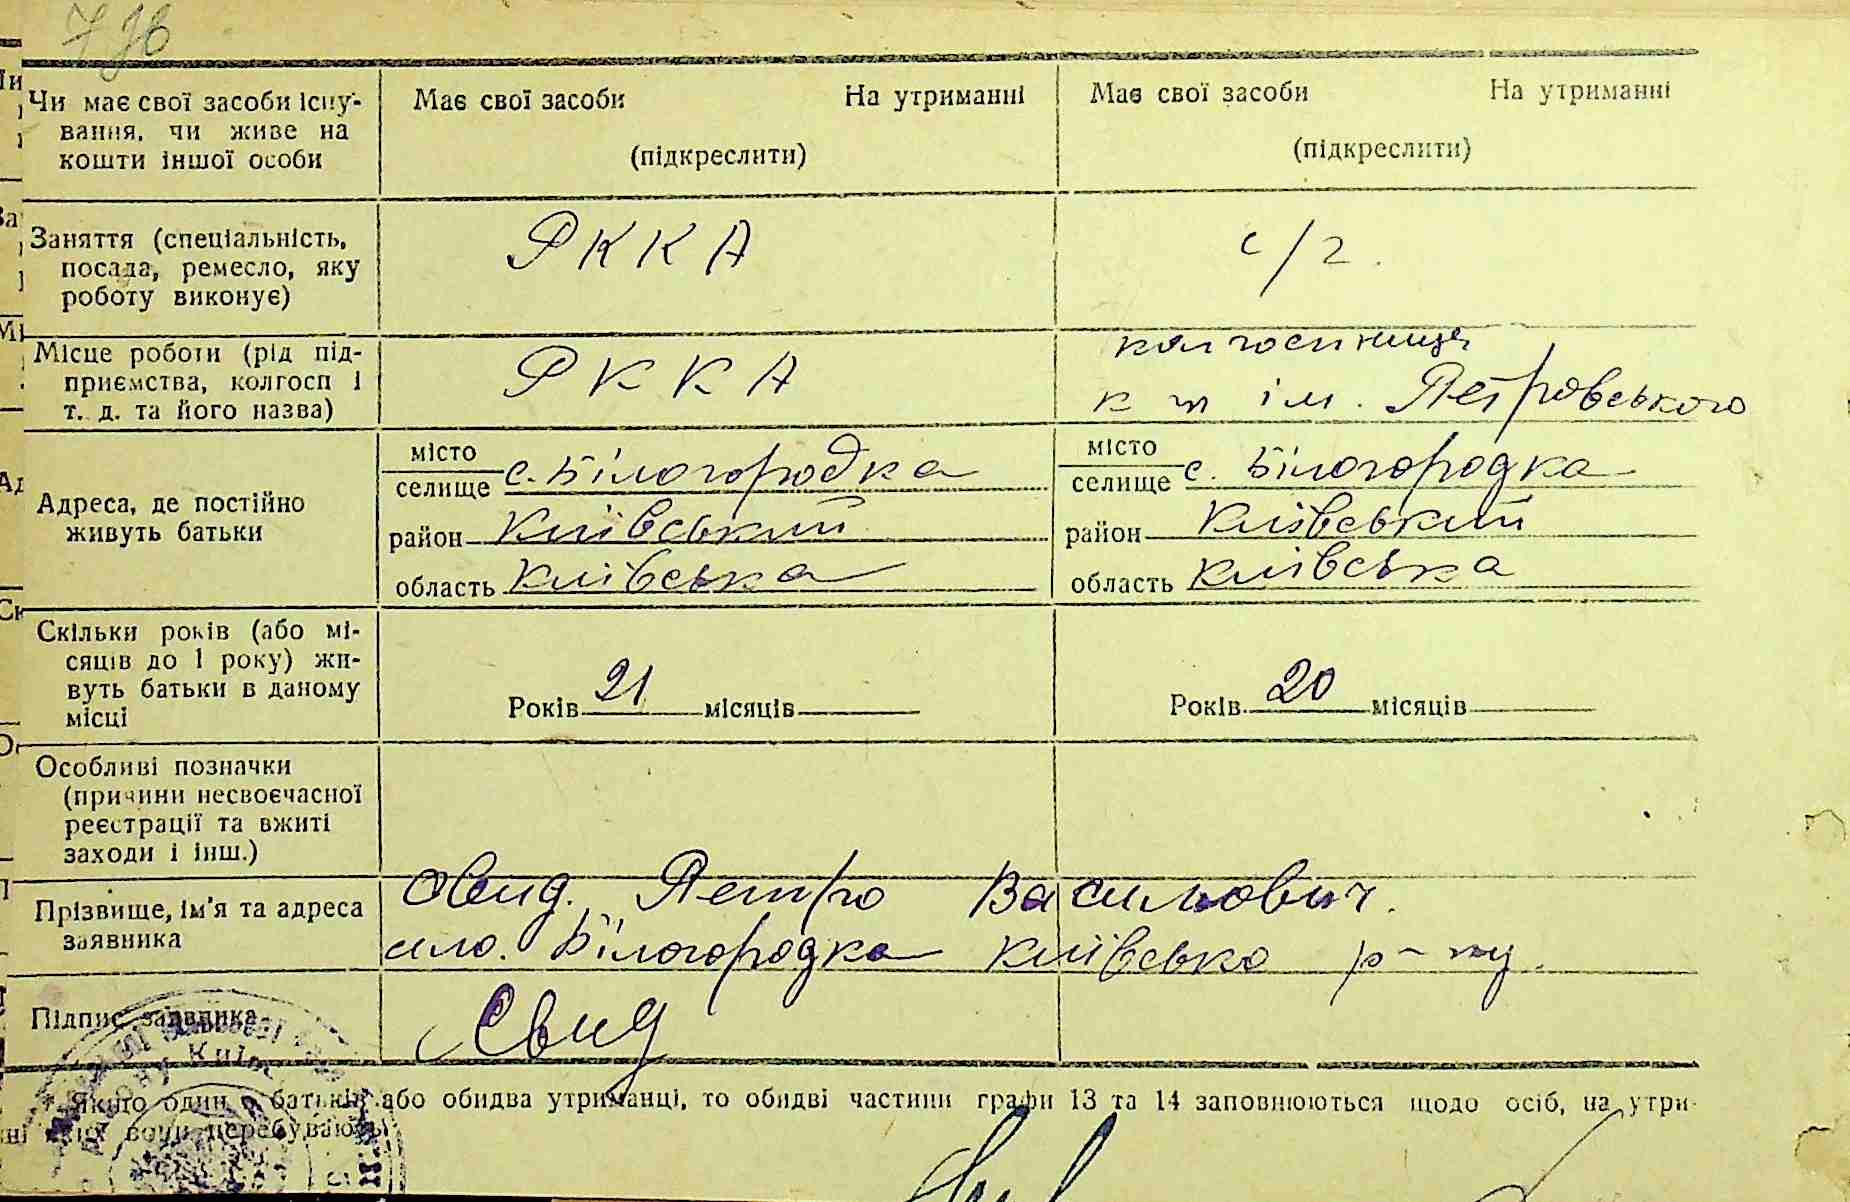 796
Чи має свої засоби існу- Має свої засоби На утриманні Має свої засоби На утриманні
вання, чи живе на
кошти іншої особи (підкреслити) (підкреслити)
Заняття (спеціальність, РККА с/г.
посада, ремесло, яку
роботу виконує)
Місце роботи (рід під- РККА колгоспниця
приємства, колгосп і к-п ім. Петровського
т. д. та його назва)
місто місто
селище с. Білогородка селище с. Білогородка
Адреса, де постійно
живуть батьки район Київський район Київський
область Київська область Київська
Скільки років (або мі-
сяців до 1 року) жи-
вуть батьки в даному
місці Років 21 місяців Років 20 місяців
Особливі позначки
(причини несвоєчасної
реєстрації та вжиті
заходи і інш.)
Прізвище, ім'я та адреса Овид. Петро Васильович.
заявника село. Білогородка Київсько р-ну.
Підпис заявника
Якщо один з батьків або обидва утриманці, то обидві частини графи 13 та 14 заповнюються щодо осіб, на утри-
ні яких вони перебувають